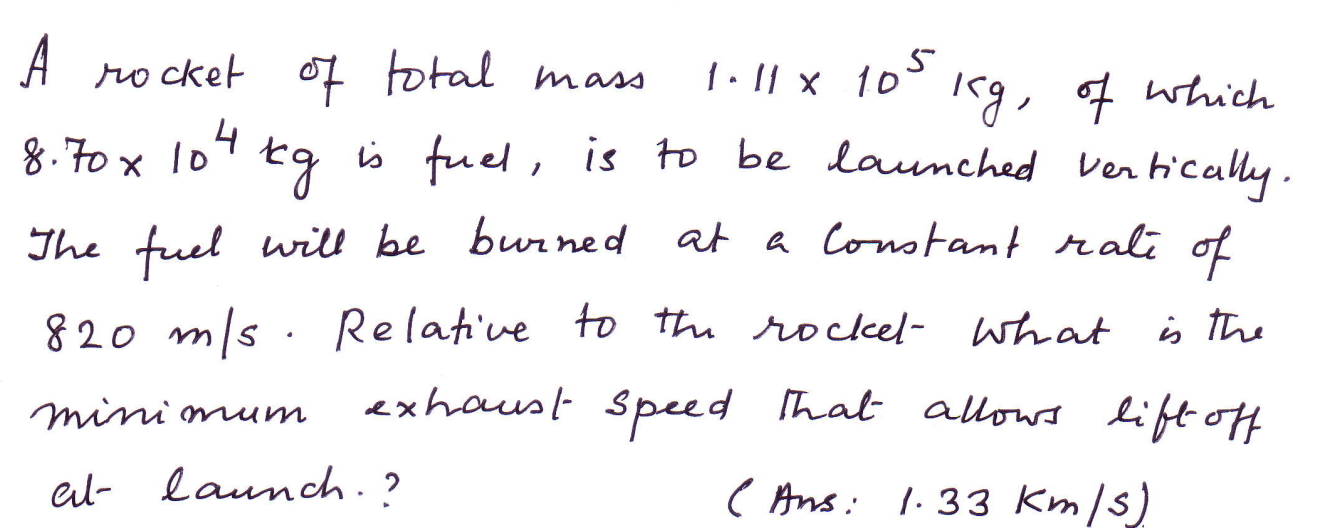 A rocket of total mass 1.11 x 10⁵ kg, of which
8.70 x 10⁴ kg is fuel, is to be launched vertically.
The fuel will be burned at a constant rate of
820 m/s. Relative to the rocket what is the
minimum exhaust speed that allows liftoff
at launch.?
(Ans: 1.33 Km/s)